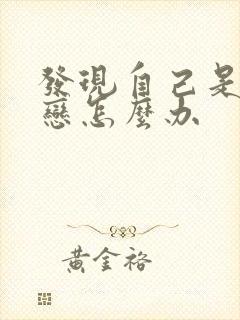 發現自己是
戀怎麼办
黃金裕